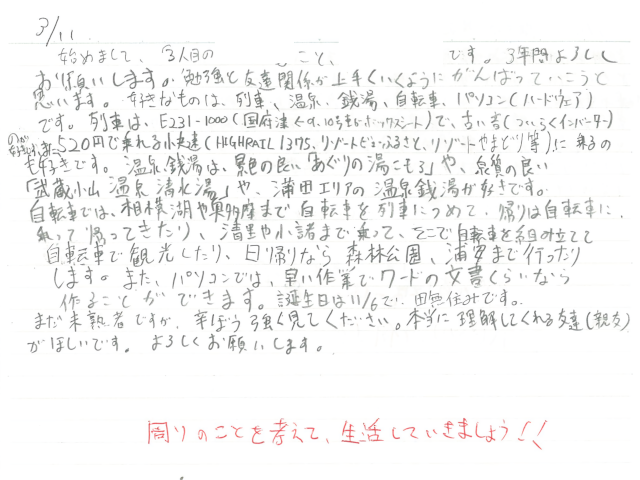 3/11
始めまして、3人目の こと、 です。3年間よろしく
お願いします。勉強と友達関係が上手くいくようにがんばっていこうと
思います。好きなものは、列車、温泉、銭湯、自転車、パソコン(ハードウェア)
です。列車は、E231-1000(国府津 10号車がボックスシート)で、古い音(ついらくインバーター)
のが好き。また520円で乗れる小快速(HIGHRAIL 1375、リゾートビューふるさと、リゾートやまどり等)に乗るの
も好きです。温泉銭湯は、景色の良い「めぐりの湯こもろ」や、泉質の良い
「武蔵小山温泉 清水湯」や、蒲田エリアの温泉銭湯が好きです。
自転車では、相模湖や奥多摩まで自転車を列車につめて、帰りは自転車に
乗って帰ってきたり、清里や小諸まで乗って、そこで自転車を組み立てて
自転車で観光したり、日帰りなら森林公園、浦安まで行ったり
します。また、パソコンでは、早い作業でワードの文書くらいなら
作ることができます。誕生日は11/6で、田無住みです。
まだ未熟者ですが、辛ぼう強く見てください。本当に理解してくれる友達(親友)
がほしいです。よろしくお願いします。
周りのことを考えて、生活していきましょう!!